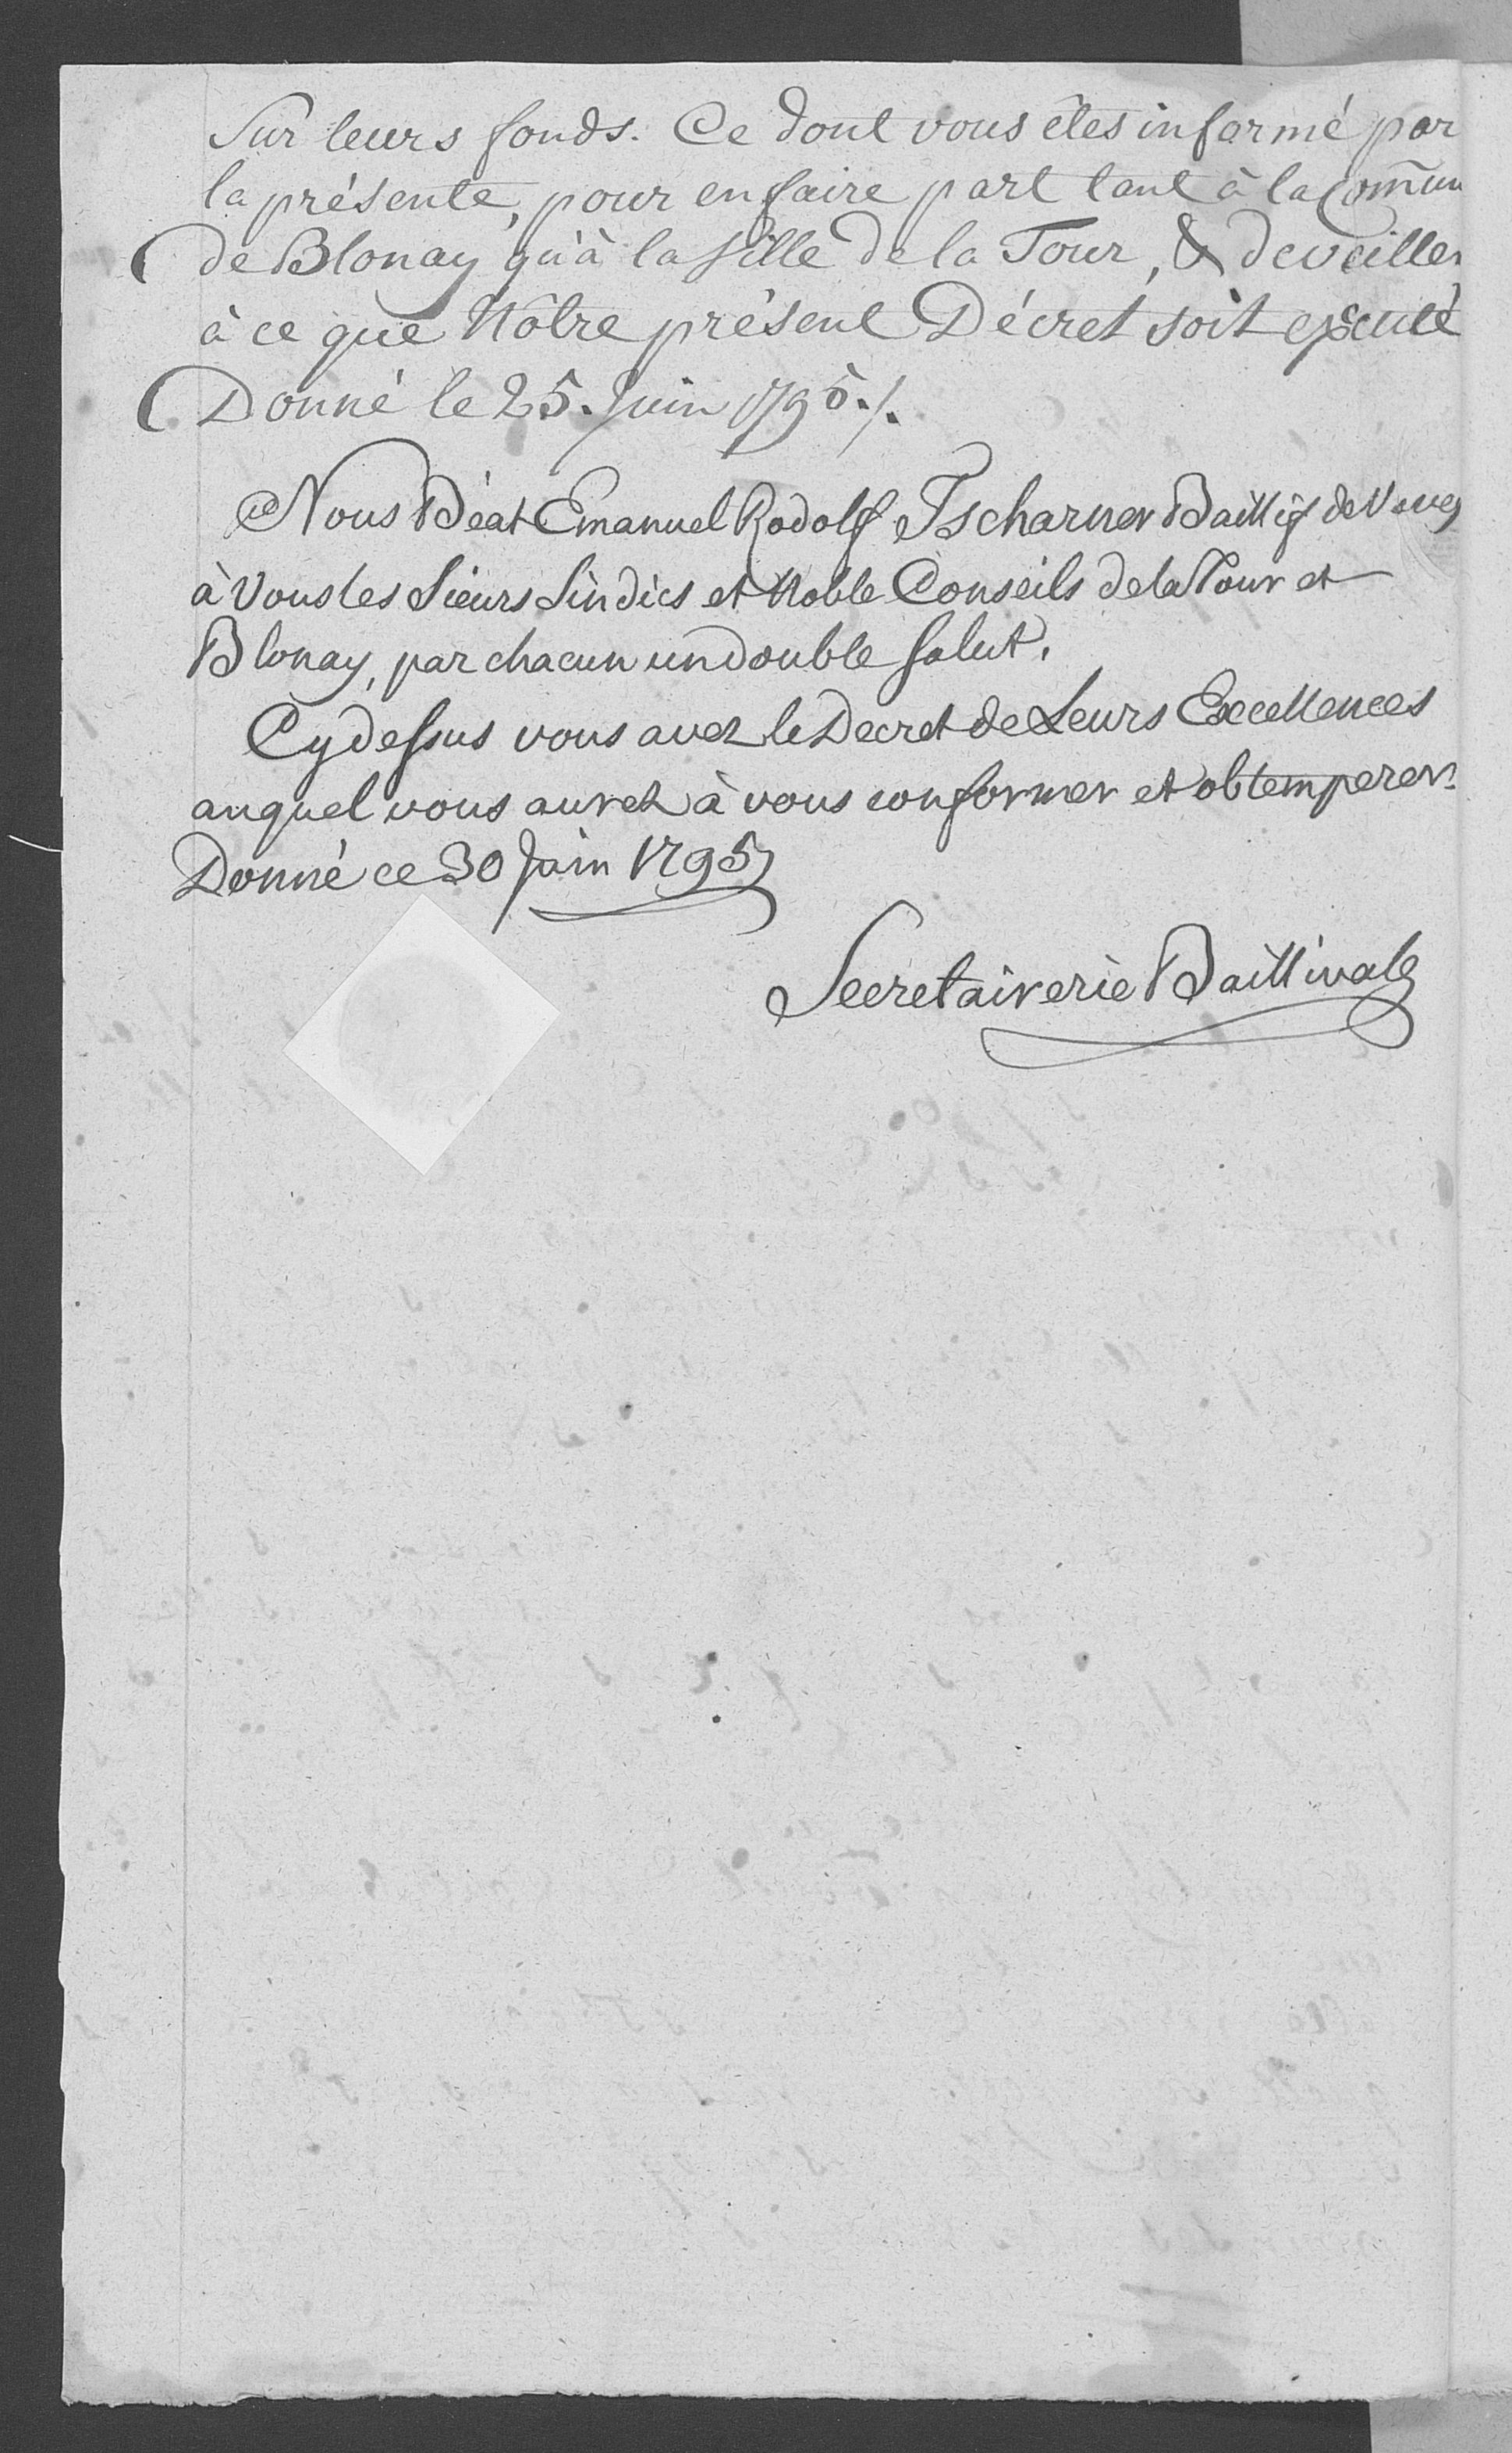 Sur leurs fonds. Ce dont vous êtes informé par
la présente, pour en faire part tant à la Com̃un
de Blonay qu'à la Ville de la Tour, & de veiller
à ce que Nôtre présent Décret soit executé
Donné le 25. Juin 1795./.
Nous Béat Emanuel Rodolf Tscharner Baillif de Vevey
à Vous les Sieurs Sindics et Noble Conseils de la Tour et
Blonay, par chacun un double salut.
Cy dessus vous avez le Decret de Leurs Excellences
auquel vous aurez à vous conformer et obtemperer.
Donné ce 30 Juin 1795
Secretairerie Baillivale